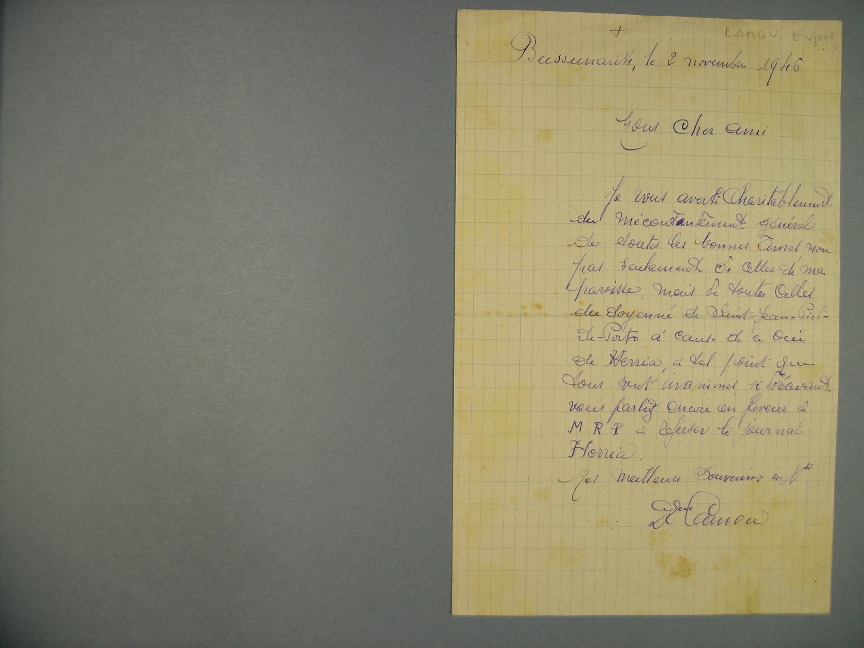 +
LAMOU. Eugène
Bussunarits, le 2 novembre 1946
Mons Cher ami
Je vous avertis Charitablement
du mécontantement général
des toutes les bonnes âmes non
pas seulement de celles de ma
paroisse, mais de toutes celles
du doyenné de Saint-Jean-Pied-
de-Porto à cause de
de Herria, à tel point que
tous sont unanimes si
vous parlez encore en faveur de
M R P à refuser le journal
Herria.
Mes meilleurs Souvenirs
Lamou